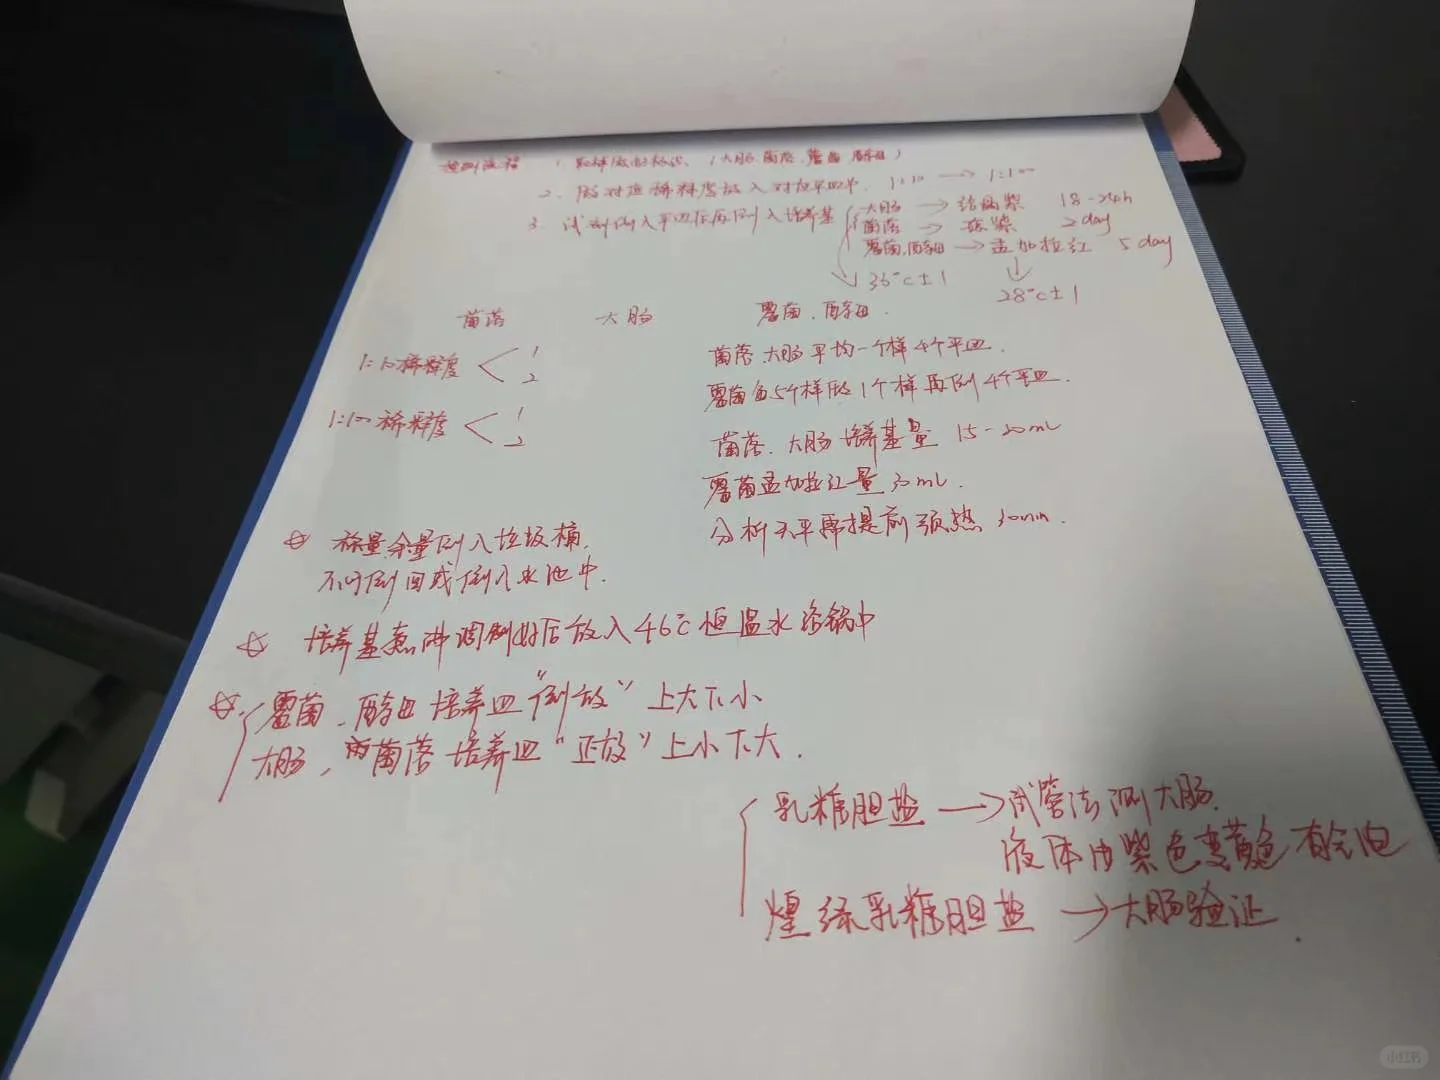 检测流程 1 取样做好标识、(大肠、菌落、霉菌、酵母)
2. 放对应稀释度放入对应平皿中. 1:10 → 1:100
3. 试剂倒入平皿后再倒入培养基
大肠 → 结晶紫 18-24h
菌落 → 琼紫 2day
霉菌、酵母 → 孟加拉红 5day
36℃±1 28℃±1
菌落 大肠 霉菌、酵母.
1:10稀释度 1 2
1:100稀释度 1 2
菌落、大肠平均一个样4个平皿.
霉菌 5个样 1个样再倒4个平皿.
菌落、大肠培养基量 15-20ml
霉菌孟加拉红量 30ml.
分析天平需提前预热 30min.
☆ 称量余量倒入垃圾桶,
不可倒回或倒入水池中.
☆ 培养基煮沸调制好后放入46℃恒温水浴锅中
☆ 霉菌、酵母培养皿“倒放”上大下小
大肠, 菌落培养皿“正放”上小下大.
乳糖胆盐 → 试管法测大肠.
液体由紫色变黄色有气泡
煌绿乳糖胆盐 → 大肠验证.
小红书